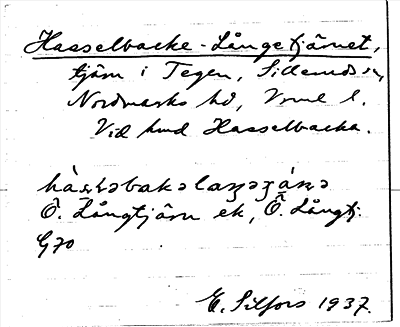 Hasselbacke-Långetjärnet,
tjärn i Tegen, Silleruds sn,
Nordmarks hd, Vrml l.
Vid hmd Hasselbacka.
Ö. Långtjärn ek, Ö. Långtj.
G70
E. Silfors 1937.